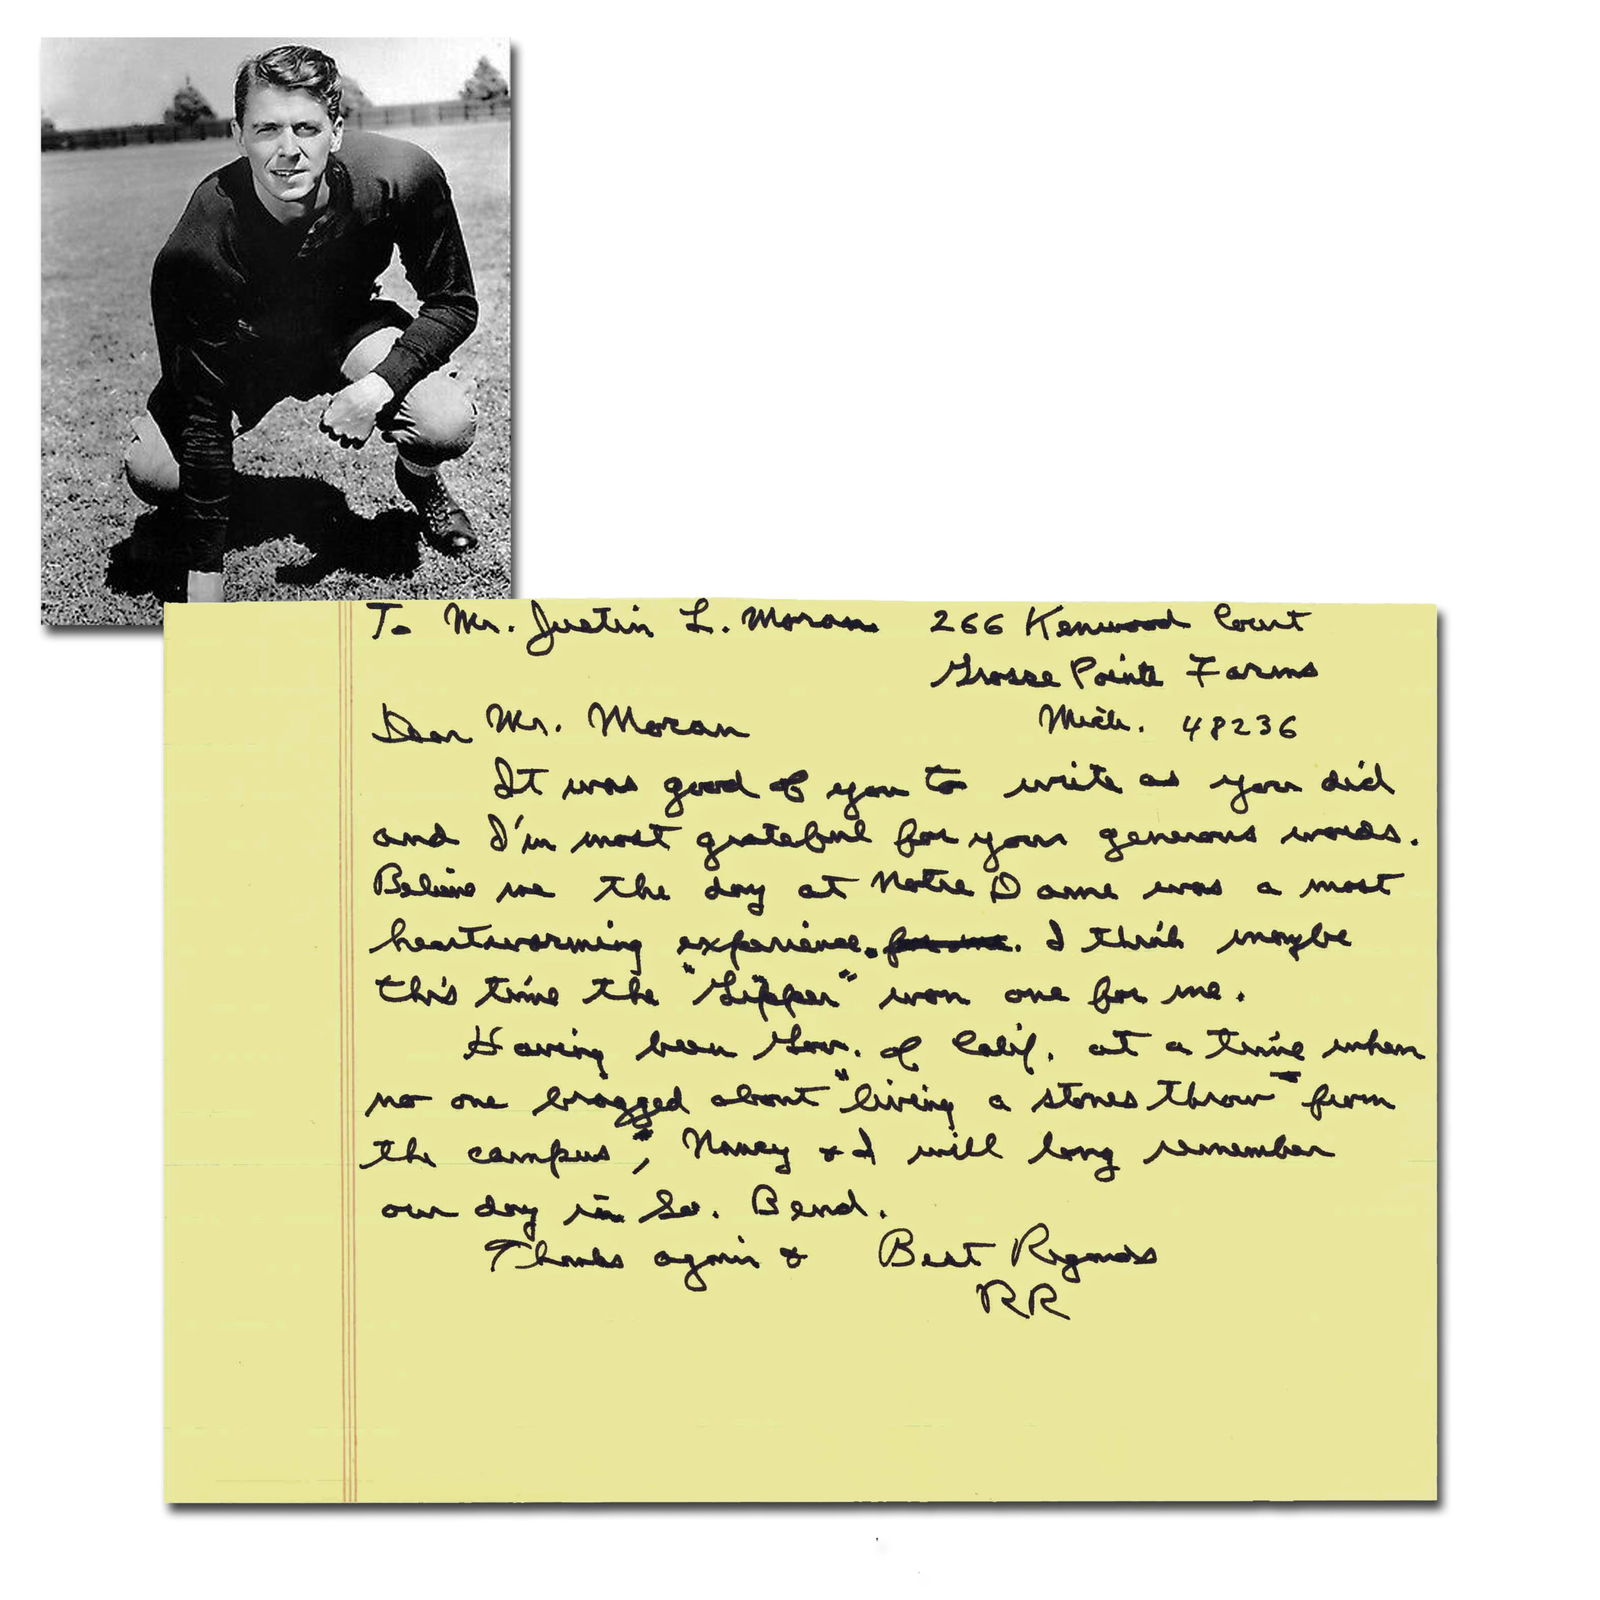 To Mr. Justin L. Moran 266 Kenwood Court
Grosse Pointe Farms
Dear Mr. Moran Mich. 48236
It was good of you to write as you did
and I'm most grateful for your generous words.
Believe me the day at Notre Dame was a most
heartwarming experience. for me. I think maybe
this time the "Gipper" won one for me.
Having been Gov. of Calif. at a time when
no one bragged about "living a stones throw from
the campus", Nancy & I will long remember
our day in So. Bend.
Thanks again & Best Regards
RR